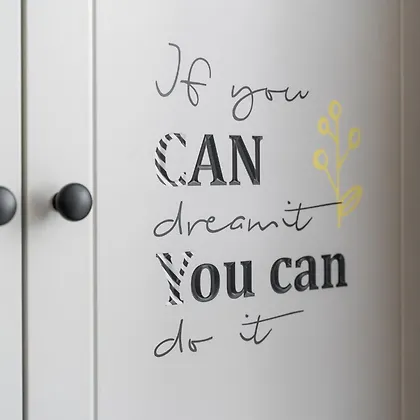 If you
CAN
dreamit
You can
do it